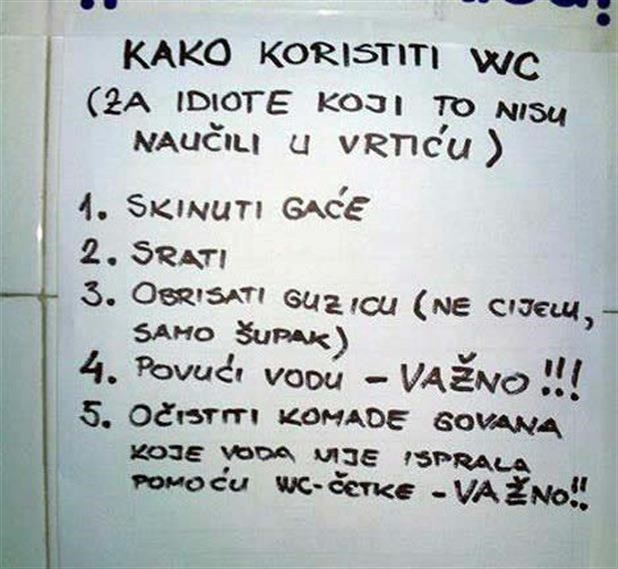 KAKO KORISTITI WC
(ZA IDIOTE KOJI TO NISU
NAUČILI U VRTIĆU)
1. SKINUTI GAĆE
2. SRATI
3. OBRISATI GUZICU (NE CIJELU,
SAMO ŠUPAK)
4. POVUĆI VODU - VAŽNO!!!
5. OČISTITI KOMADE GOVANA
KOJE VODA NIJE ISPRALA
POMOĆU WC-ČETKE - VAŽNO!!